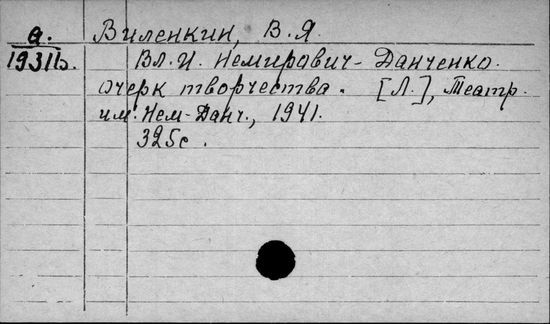 а. Виленкин, В.Я.
1931б. Вл.И. Немирович-Данченко.
Очерк творчества. [Л.], Театр.
им. Нем-Данч., 1941.
325с.